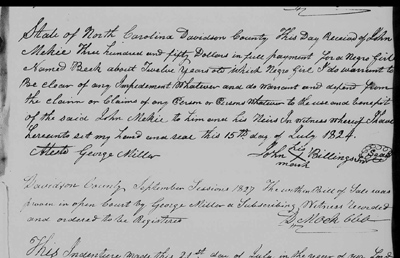 State of North Carolina Davidson County This Day Received of John
Mekie Three hundred and fifty Dollars in full payment for a Negro Girl
Named Beck about Twelve Years old which Negro Girl I do warrant to
be clear of any Impedement Whatever and do warrant and defend from
the claim or Claims of any Person or Persons Whatever to the use and benefit
of the said John Mekie to him and his Heirs In witness whereof I have
hereunto set my hand and seal this 15th day of July 1824.
Teste George Miller
his
John X Billings Seal
mark
Davidson County, September Sessions 1827 The within Bill of Sale was
proven in open Court by George Miller a Subscribing Witness Recorded
and ordered to be Registered
D Mock CCC
This Indenture made this 21st day of July in the year of our Lord